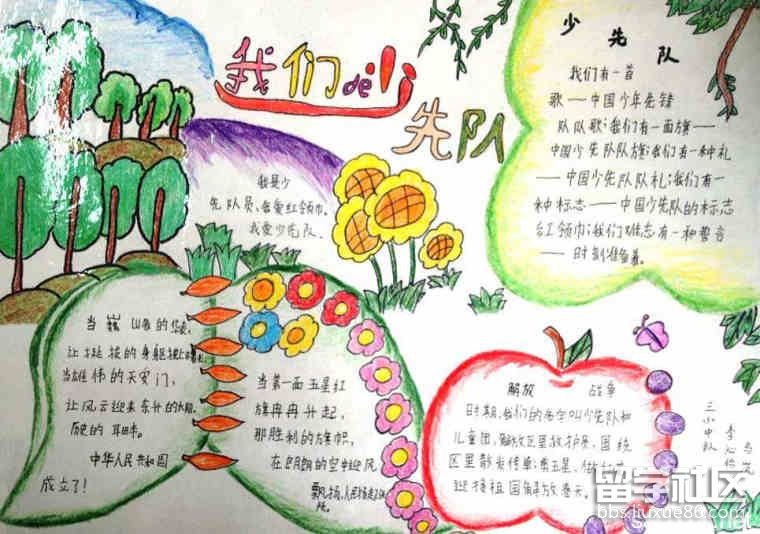 我们de小
先队
少先队
我们有一首
歌——中国少年先锋
队队歌；我们有一面旗——
中国少先队队旗；我们有一种礼
——中国少先队队礼；我们有一
种标志——中国少先队的标志
红领巾；我们
有一种誓言
——时刻准备着。
我是少
先队员，我爱红领巾。
我爱少先队。
当巍
的
让
拔的身躯
当雄伟的天安门，
让风云迎来东升的太阳，
历史的
中华人民共和国
成立了！
当第一面五星红
旗冉冉升起，
那胜利的旗帜，
在朗朗的空中迎风
飘扬，人民
解放 战争
时期，我们的名字叫少先队和
儿童团，解放区里放护
，国统
区里散发传单；
五星，
迎接祖国
三小中队
李
留学社区
bbs.liuxue86.com